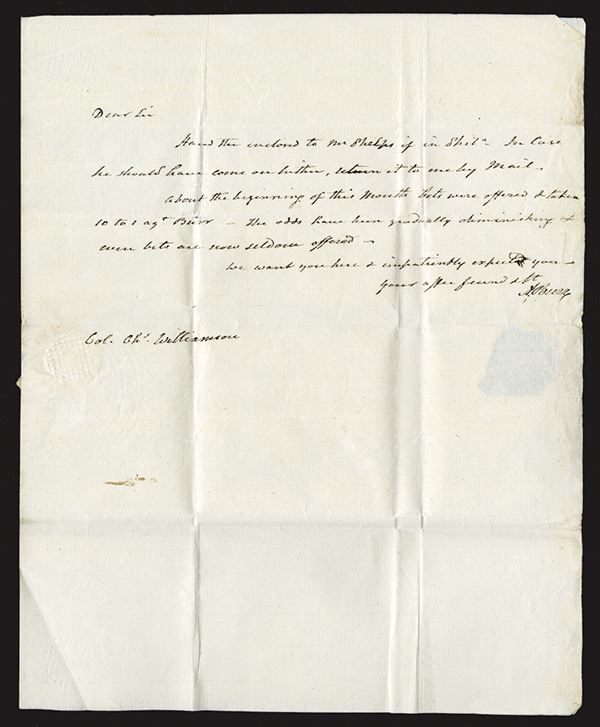 Dear Sir
Hand the enclosed to Mr Phelps if in Phila. In Case
he should have come on hither, return it to me by Mail.
About the beginning of this Month bets were offered & taken
10 to 1 agt Burr — The odds have been gradually diminishing &
even bets are now seldom offered —
We want you here & impatiently expect you —
Your affec friend & St
A. Burr
Col. Chs. Williamson